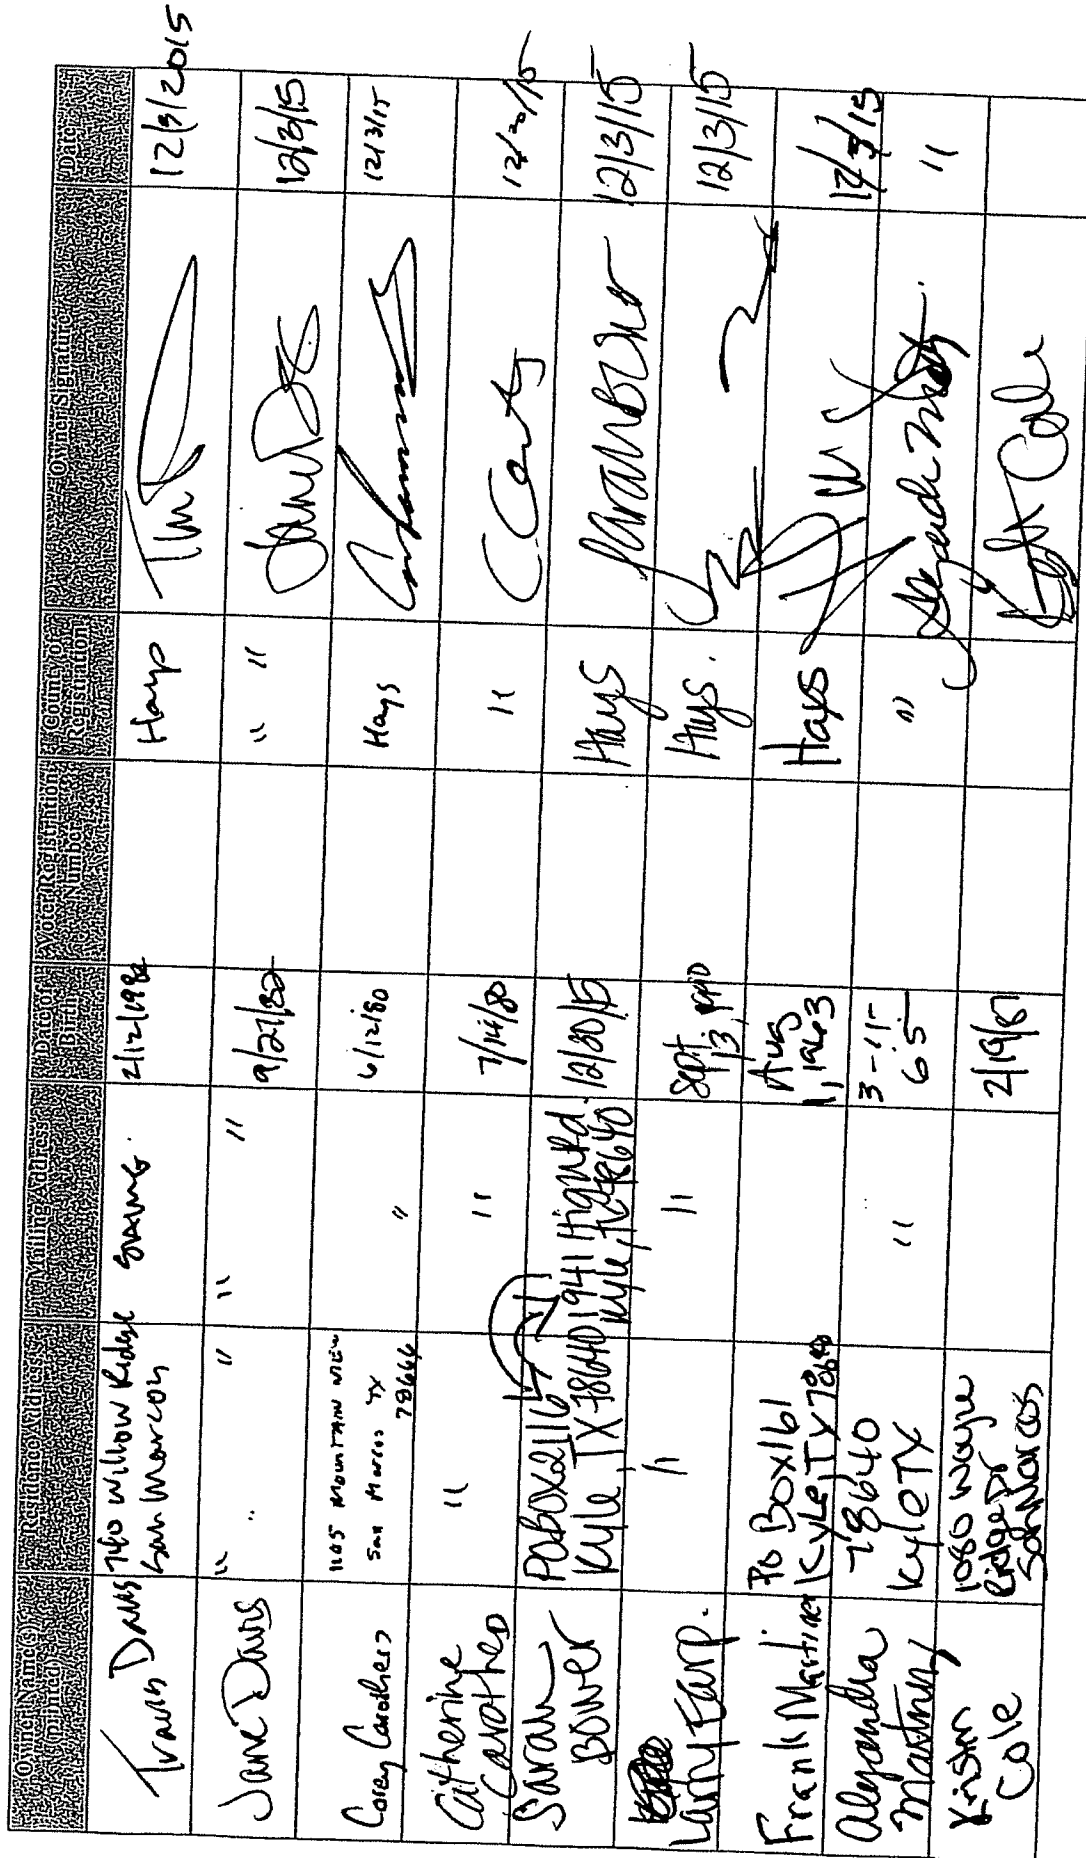 Owner Name(s) (printed) Residence Address Mailing Address Date of Birth Voter Registration Number County of Registration Owner Signature Date
Travis Davis 740 Willow Ridge San Marcos Same. 2/12/1982 Hays 12/3/2015
Jamie Davis " " " " 9/27/82 " " 12/3/15
Corey Carothers 1105 Mountain View San Marcos TX 78666 " 6/12/80 Hays 12/3/15
Catherine Carothers " " 7/14/80 " 12/20/15
Sarah Bower PO BOX 2116 Kyle, TX 78640 1941 High Rd. Kyle, TX 78640 12/30/15 Hays Sarah Bower 12/3/15
Larry Earp. " " Sept. 13, Hays. 12/3/15
Frank Martinez PO Box 161 Kyle, TX 78640 Aug 1, 1963 Hays 12/3/15
Alejandra Martinez 78640 Kyle TX " 3-11-65 " "
Kristin Cole 1080 Wayne Ridge Dr San Marcos 2/19/87 Cole